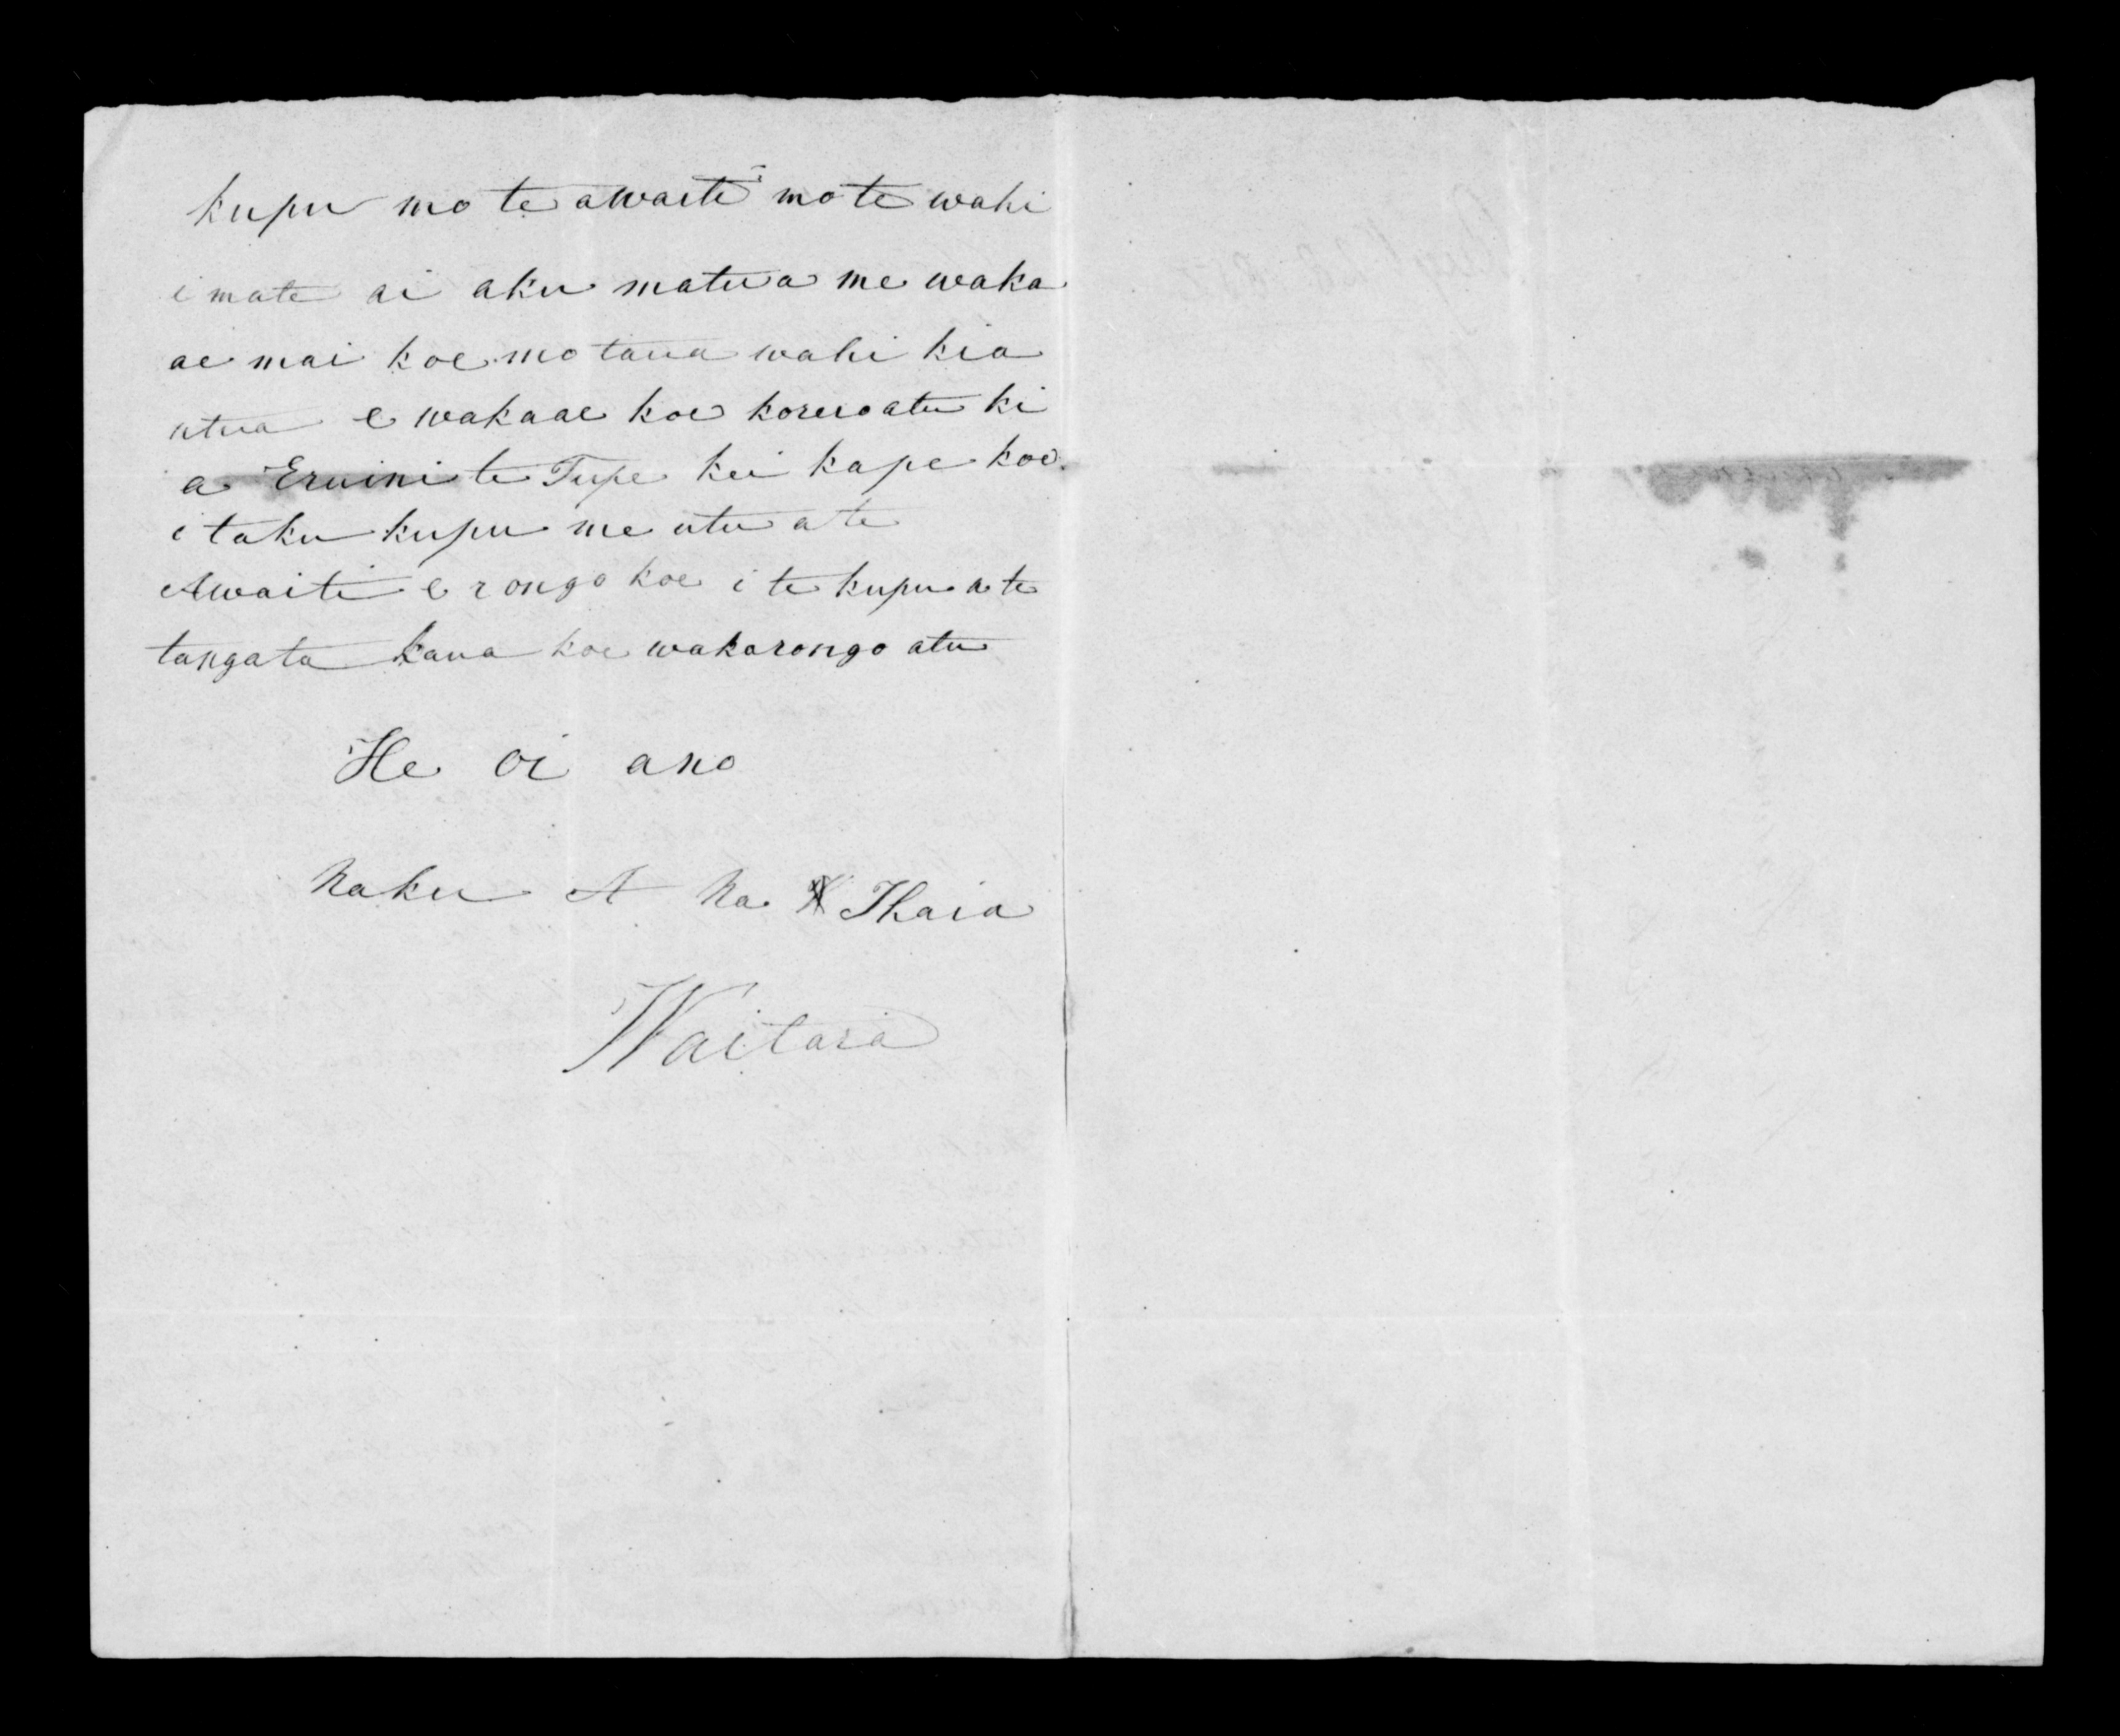 kupu mo te awaiti mo te wahi
i mate ai aku matua me waka
ae mai koe mo taua wahi kia
utua e wakaae koe korero atu ki
a Eruini te Tupe kei kape koe
i taku kupu me utu a te
Awaiti e rongo koe i te kupu a te
tangata kaua koe wakarongo atu
He oi ano
Naku A Na Ihaia
Waitara